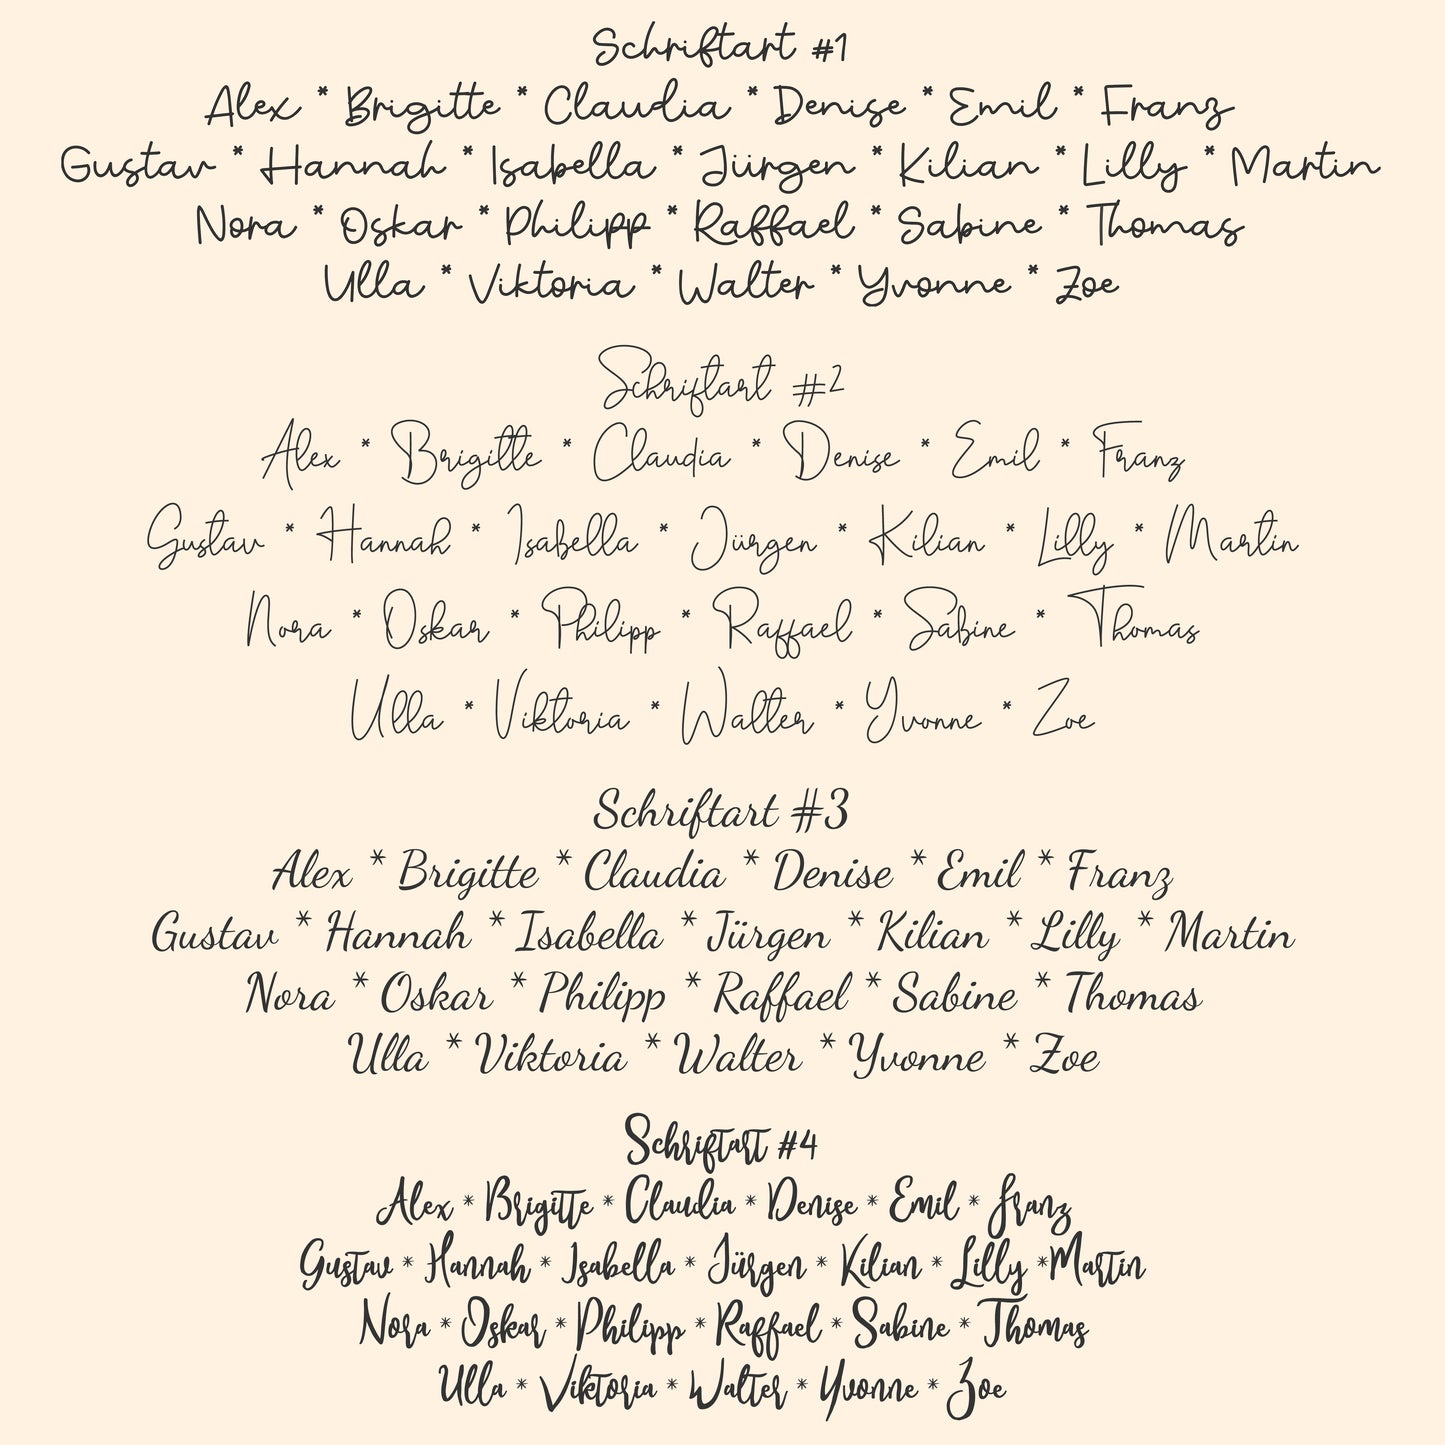 Schriftart #1
Alex * Brigitte * Claudia * Denise * Emil * Franz
Gustav * Hannah * Isabella * Jürgen * Kilian * Lilly * Martin
Nora * Oskar * Philipp * Raffael * Sabine * Thomas
Ulla * Viktoria * Walter * Yvonne * Zoe
Schriftart #2
Alex * Brigitte * Claudia * Denise * Emil * Franz
Gustav * Hannah * Isabella * Jürgen * Kilian * Lilly * Martin
Nora * Oskar * Philipp * Raffael * Sabine * Thomas
Ulla * Viktoria * Walter * Yvonne * Zoe
Schriftart #3
Alex * Brigitte * Claudia * Denise * Emil * Franz
Gustav * Hannah * Isabella * Jürgen * Kilian * Lilly * Martin
Nora * Oskar * Philipp * Raffael * Sabine * Thomas
Ulla * Viktoria * Walter * Yvonne * Zoe
Schriftart #4
Alex * Brigitte * Claudia * Denise * Emil * Franz
Gustav * Hannah * Isabella * Jürgen * Kilian * Lilly *Martin
Nora * Oskar * Philipp * Raffael * Sabine * Thomas
Ulla * Viktoria * Walter * Yvonne * Zoe